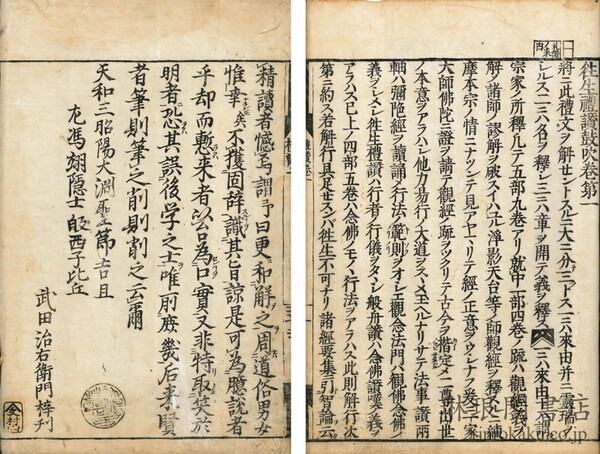 往生禮讃鼓吹卷第一
將ニ此禮文ヲ解セントスルニ大ニ分テ三トス一ニハ來由并ニ靈瑞
シルス二ニハ名ヲ釋シ三ニハ章ヲ開テ義ヲ釋ス一ニハ來由
宗家ノ所釋凡テ五部九卷アリ就中一部四卷ノ疏ハ觀經
解ノ諸師ノ謬解ヲ破スイハユル淨影天台等ノ師觀經ヲ釋スル
摩本宗ノ情ニ見アヤマリテ經ノ正意ヲウシナフ家
大師佛陀ニ證ヲ請テ觀經ノ疏ヲツクリテ古今ヲ楷定メ二尊出世
ノ本意ヲアラハシ他力易行ノ大道ヲスヽメ玉ヘルナリサテ法事讃兩
軸ハ彌陀經ヲ讀誦ノ行法ノ軌則ヲオシエ觀念法門ハ觀佛念佛ノ
義ヲシメシ往生禮讃ハ行者ノ行儀ヲタヽシ般舟讃ハ念佛讃嘆ノ義ヲ
アラハス已上ノ四部五卷ハ念佛ノモノヽ行法ヲアラハス此則解行次
第ニ約ス若解行具足セスンハ往生不可ナリ諸經要集ニ引智論云
精讀者憾焉謂予曰更和解之周道俗男女
惟幸矣不獲固辞識其旨諒是可為臆説者
乎却而慙來者以台為口實又非特取笑於
明者恐其誤後学之士唯前廢幾后來賢
者筆則筆之削則削之云爾
天和三昭陽大淵聖節吉且
尨馮翊隱士皎西子比丘
武田治右衛門梓刋